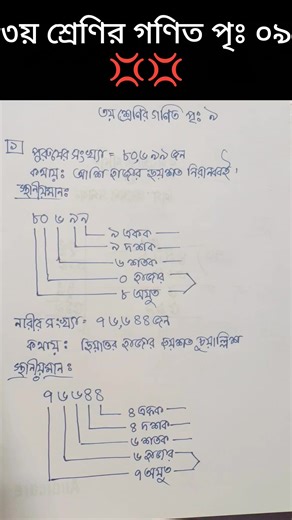 ৩য় শ্রেণির গণিত পৃঃ ০৯
৩য় শ্রেণির গণিত পৃঃ ৯
১ পুরুষের সংখ্যা = ৮০,৬৯৯ জন
কথায়ঃ আশি হাজার ছয়শত নিরানব্বই।
স্থানীয়মানঃ
৮০৬৯৯
৯ একক
৯ দশক
৬ শতক
০ হাজার
৮ অযুত
নারীর সংখ্যা = ৭৬,৬৪৪ জন
কথায়ঃ ছিয়াত্তর হাজার ছয়শত চুয়াল্লিশ
স্থানীয়মানঃ
৭৬৬৪৪
৪ একক
৪ দশক
৬ শতক
৬ হাজার
৭ অযুত